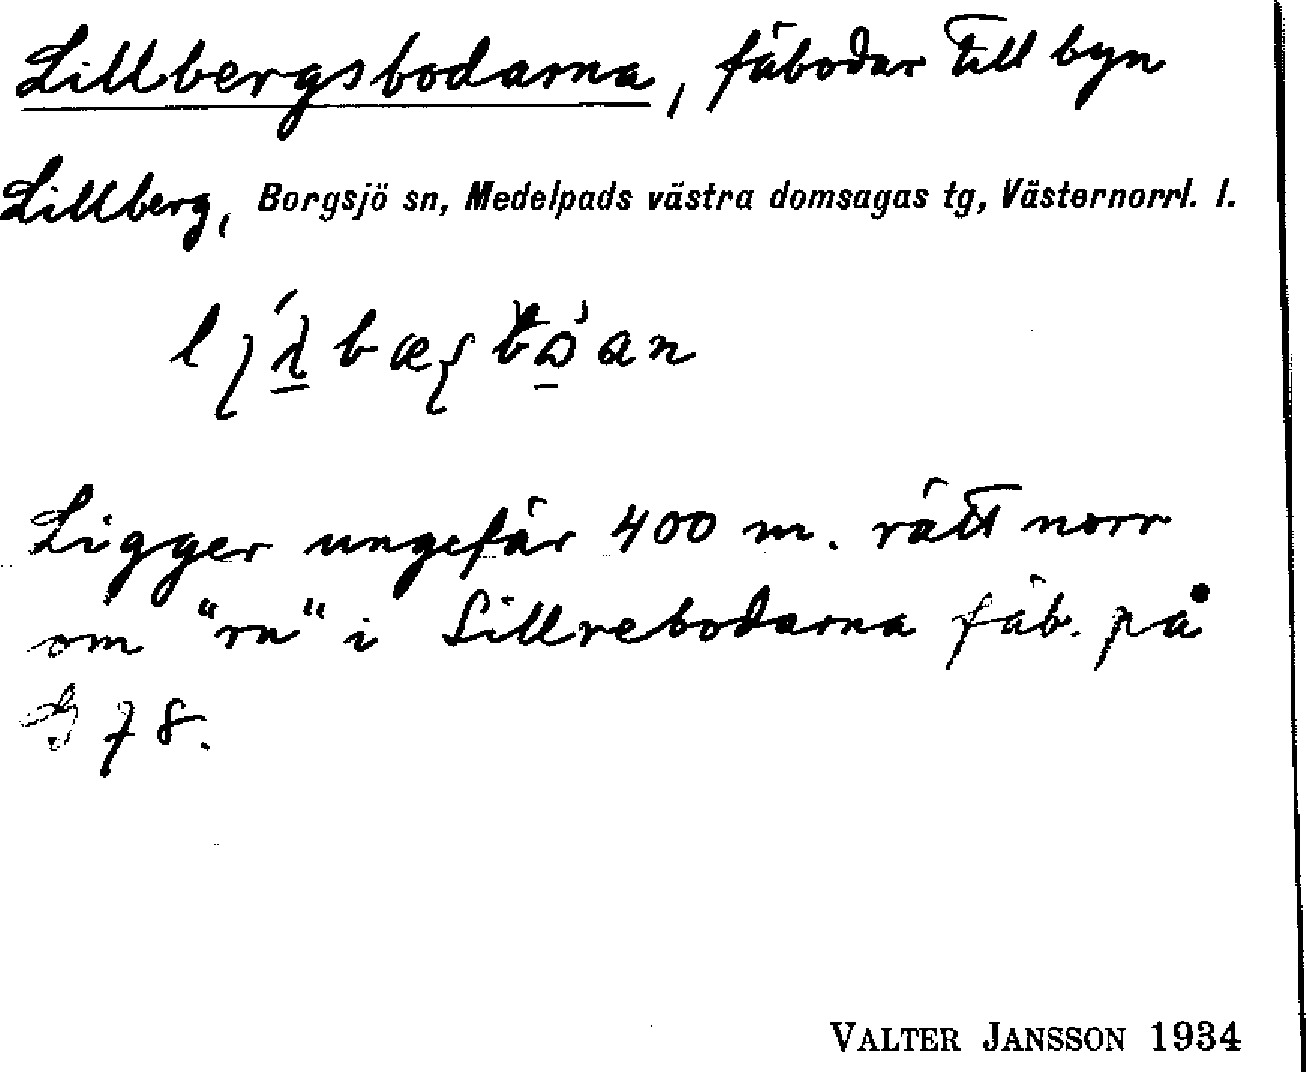 Lillbergsbodarna, fäbodar till byn
Lillberg, Borgsjö sn, Medelpads västra domsagas tg, Västernorrl. l.
Ligger ungefär 400 m. rätt norr
om "rn" i Lillrebodarna fäb. på
G 78.
VALTER JANSSON 1934